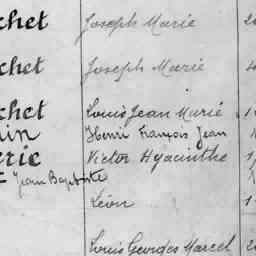 chet Joseph Marie
chet Joseph Marie
chet Louis Jean Marie
in Henri François Jean
erie Victor Hyacinthe
Jean Baptiste
Léon
Louis Georges Marcel